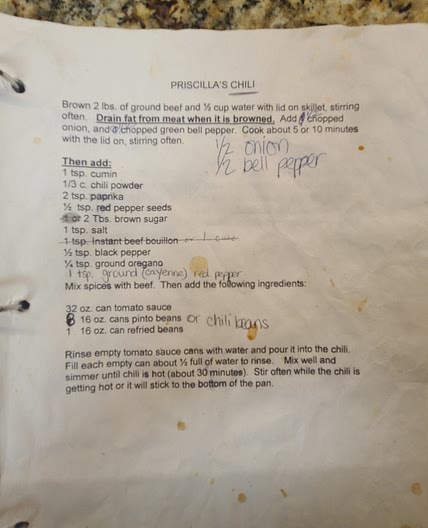 PRISCILLA'S CHILI
Brown 2 lbs. of ground beef and ½ cup water with lid on skillet, stirring
often. Drain fat from meat when it is browned. Add chopped
onion, and chopped green bell pepper. Cook about 5 or 10 minutes
with the lid on, stirring often.
1/2 onion
1/2 bell pepper
Then add:
1 tsp. cumin
1/3 c. chili powder
2 tsp. paprika
½ tsp. red pepper seeds
1 or 2 Tbs. brown sugar
1 tsp. salt
1 tsp. Instant beef bouillon or 1 cube
½ tsp. black pepper
¼ tsp. ground oregano
1 tsp. ground (cayenne) red pepper
Mix spices with beef. Then add the following ingredients:
32 oz. can tomato sauce
16 oz. cans pinto beans or chili beans
1 16 oz. can refried beans
Rinse empty tomato sauce cans with water and pour it into the chili.
Fill each empty can about ½ full of water to rinse. Mix well and
simmer until chili is hot (about 30 minutes). Stir often while the chili is
getting hot or it will stick to the bottom of the pan.